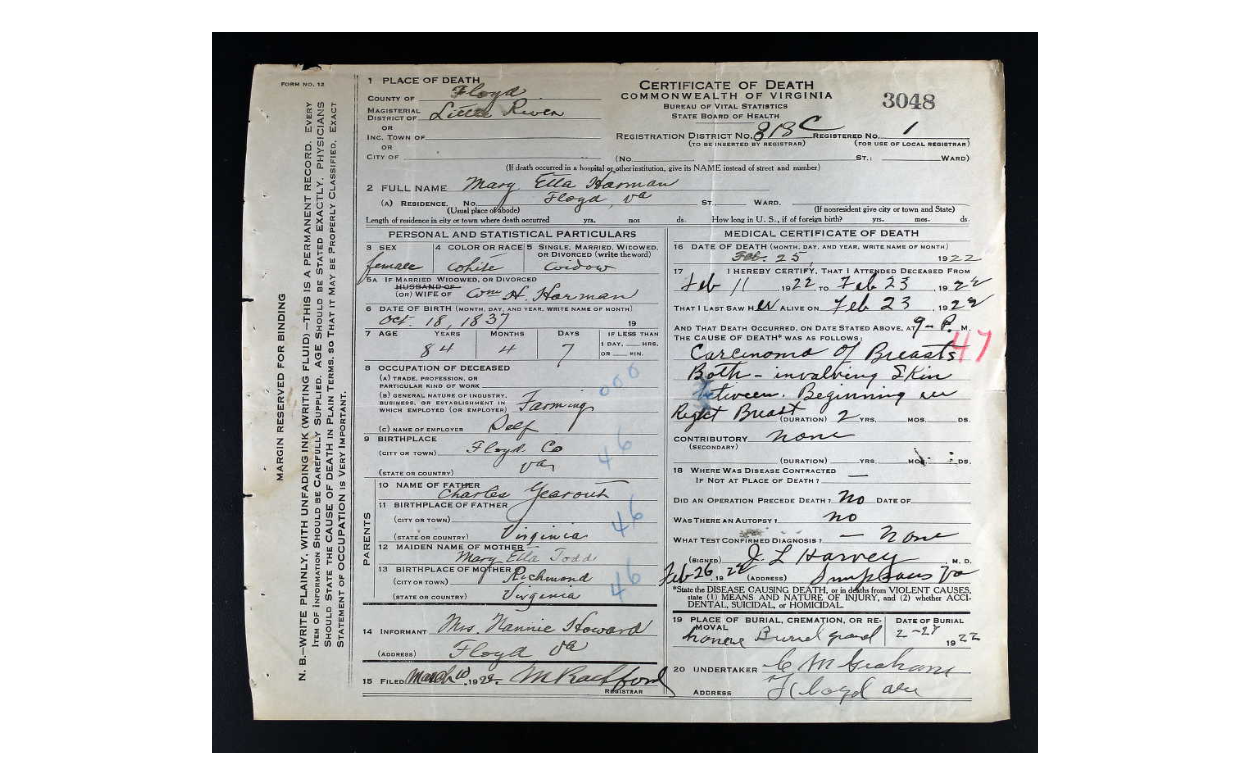 FORM NO. 12
MARGIN RESERVED FOR BINDING
N. B.—WRITE PLAINLY, WITH UNFADING INK (WRITING FLUID)—THIS IS A PERMANENT RECORD. EVERY
ITEM OF INFORMATION SHOULD BE CAREFULLY SUPPLIED. AGE SHOULD BE STATED EXACTLY. PHYSICIANS
SHOULD STATE THE CAUSE OF DEATH IN PLAIN TERMS, SO THAT IT MAY BE PROPERLY CLASSIFIED. EXACT
STATEMENT OF OCCUPATION IS VERY IMPORTANT.
CERTIFICATE OF DEATH
COMMONWEALTH OF VIRGINIA
BUREAU OF VITAL STATISTICS
STATE BOARD OF HEALTH
3048
1 PLACE OF DEATH
COUNTY OF Floyd
MAGISTERIAL DISTRICT OF Little River
OR
INC. TOWN OF
OR
CITY OF (No. ST.; WARD)
REGISTRATION DISTRICT No. 818 C REGISTERED No. 1
(TO BE INSERTED BY REGISTRAR) (FOR USE OF LOCAL REGISTRAR)
(If death occurred in a hospital or other institution, give its NAME instead of street and number)
2 FULL NAME Mary Ella Harman
(A) RESIDENCE. No. Floyd, Va ST. WARD.
(Usual place of abode) (If nonresident give city or town and State)
Length of residence in city or town where death occurred yrs. mos ds. How long in U. S., if of foreign birth? yrs. mos. ds.
PERSONAL AND STATISTICAL PARTICULARS
3 SEX 4 COLOR OR RACE 5 SINGLE, MARRIED, WIDOWED, OR DIVORCED (write the word)
female white widow
5A IF MARRIED WIDOWED, OR DIVORCED
HUSBAND OF
(OR) WIFE OF Wm H. Harman
6 DATE OF BIRTH (MONTH, DAY, AND YEAR, WRITE NAME OF MONTH)
Oct. 18, 1837 19
7 AGE YEARS MONTHS DAYS IF LESS THAN
1 DAY, HRS.
OR MIN.
84 4 7
8 OCCUPATION OF DECEASED
(A) TRADE, PROFESSION, OR
PARTICULAR KIND OF WORK
000
(B) GENERAL NATURE OF INDUSTRY,
BUSINESS, OR ESTABLISHMENT IN
WHICH EMPLOYED (OR EMPLOYER) Farming
(C) NAME OF EMPLOYER Self
9 BIRTHPLACE
(CITY OR TOWN) Floyd Co
(STATE OR COUNTRY) Va
46
PARENTS
10 NAME OF FATHER
Charles Yearout
11 BIRTHPLACE OF FATHER
(CITY OR TOWN)
(STATE OR COUNTRY) Virginia
46
12 MAIDEN NAME OF MOTHER
Mary Ella Todd
13 BIRTHPLACE OF MOTHER
(CITY OR TOWN) Richmond
(STATE OR COUNTRY) Virginia
46
14 INFORMANT Mrs. Nannie Howard
(ADDRESS) Floyd Va
15 FILED March 10, 1922
REGISTRAR
MEDICAL CERTIFICATE OF DEATH
16 DATE OF DEATH (MONTH, DAY, AND YEAR, WRITE NAME OF MONTH)
Feb. 25, 1922
17 I HEREBY CERTIFY, THAT I ATTENDED DECEASED FROM
Feb 11 1922 TO Feb 23, 1922
THAT I LAST SAW Her ALIVE ON Feb 23, 1922
AND THAT DEATH OCCURRED, ON DATE STATED ABOVE, AT 9-P. M.
THE CAUSE OF DEATH* WAS AS FOLLOWS:
47
Carcinoma of Breasts
Both - involving Skin
between. Beginning in
Right Breast (DURATION) 2 YRS. MOS. DS.
CONTRIBUTORY none
(SECONDARY)
(DURATION) YRS. MOS. DS.
18 WHERE WAS DISEASE CONTRACTED
IF NOT AT PLACE OF DEATH?
DID AN OPERATION PRECEDE DEATH? No DATE OF
WAS THERE AN AUTOPSY? no
WHAT TEST CONFIRMED DIAGNOSIS? - None
(SIGNED) J L Harvey M. D.
Feb 26, 1922 (ADDRESS) Simpsons Va
*State the DISEASE CAUSING DEATH, or in deaths from VIOLENT CAUSES,
state (1) MEANS AND NATURE OF INJURY, and (2) whether ACCI-
DENTAL, SUICIDAL, or HOMICIDAL.
19 PLACE OF BURIAL, CREMATION, OR RE- DATE OF BURIAL
MOVAL
2-27 1922
20 UNDERTAKER C M Graham
ADDRESS Floyd